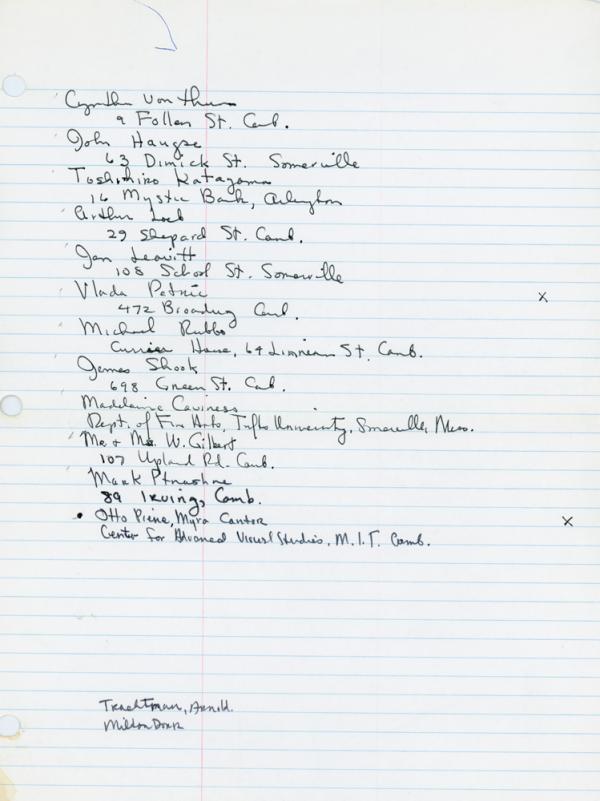 Cynthia von Thuna
9 Follen St. Camb.
John Haugse
63 Dimick St. Somerville
Toshihiro Katayama
16 Mystic Bank, Arlington
Arthur Loeb
29 Shepard St. Camb.
Jan Leavitt
108 School St. Somerville
Vlada Petric x
472 Broadway Camb.
Michael Rubbo
Currier House, 64 Linnean St. Camb.
James Shook
698 Green St. Camb.
Madelaine Caviness
Dept. of Fine Arts, Tufts University, Somerville, Mass.
Mr + Mrs. W. Gilbert
107 Upland Rd. Camb.
Mark Ptnashne
89 Irving, Camb.
• Otto Piene, Myra Cantor x
Center for Advanced Visual Studies, M.I.T. Camb.
Trachtman, Arnold.
Milton